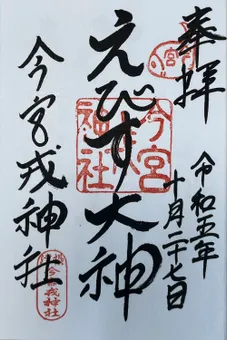 奉拝
宮
令和五年
十月二十七日
えびす大神
今宮
神社
今宮戎神社
今宮戎神社